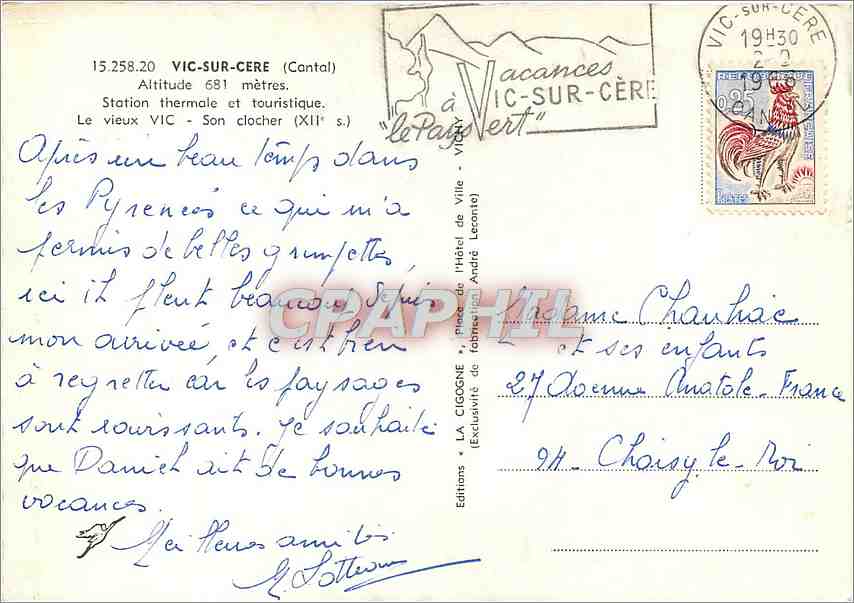 15.258.20 VIC-SUR-CERE (Cantal)
Altitude 681 mètres.
Station thermale et touristique.
Le vieux VIC - Son clocher (XIIe s.)
Après un beau temps dans
les Pyrenées ce qui m'a
permis de belles grimpettes,
ici il pleut beaucoup depuis
mon arrivée, et c'est bien
à regretter car les paysages
sont ravissants. Je souhaite
que Daniel ait de bonnes
vacances.
Meilleures amitiés
Editions « LA CIGOGNE », Place de l'Hôtel de Ville - VICHY
(Exclusivité de fabrication André Leconte)
Vacances
à VIC-SUR-CÈRE
"le Pays Vert"
VIC-SUR-CERE
19H30
2-9
CANTAL
0,25
Madame Chauhac
et ses enfants
27 Avenue Anatole-France
94- Choisy-le-Roi
CPAPHIL